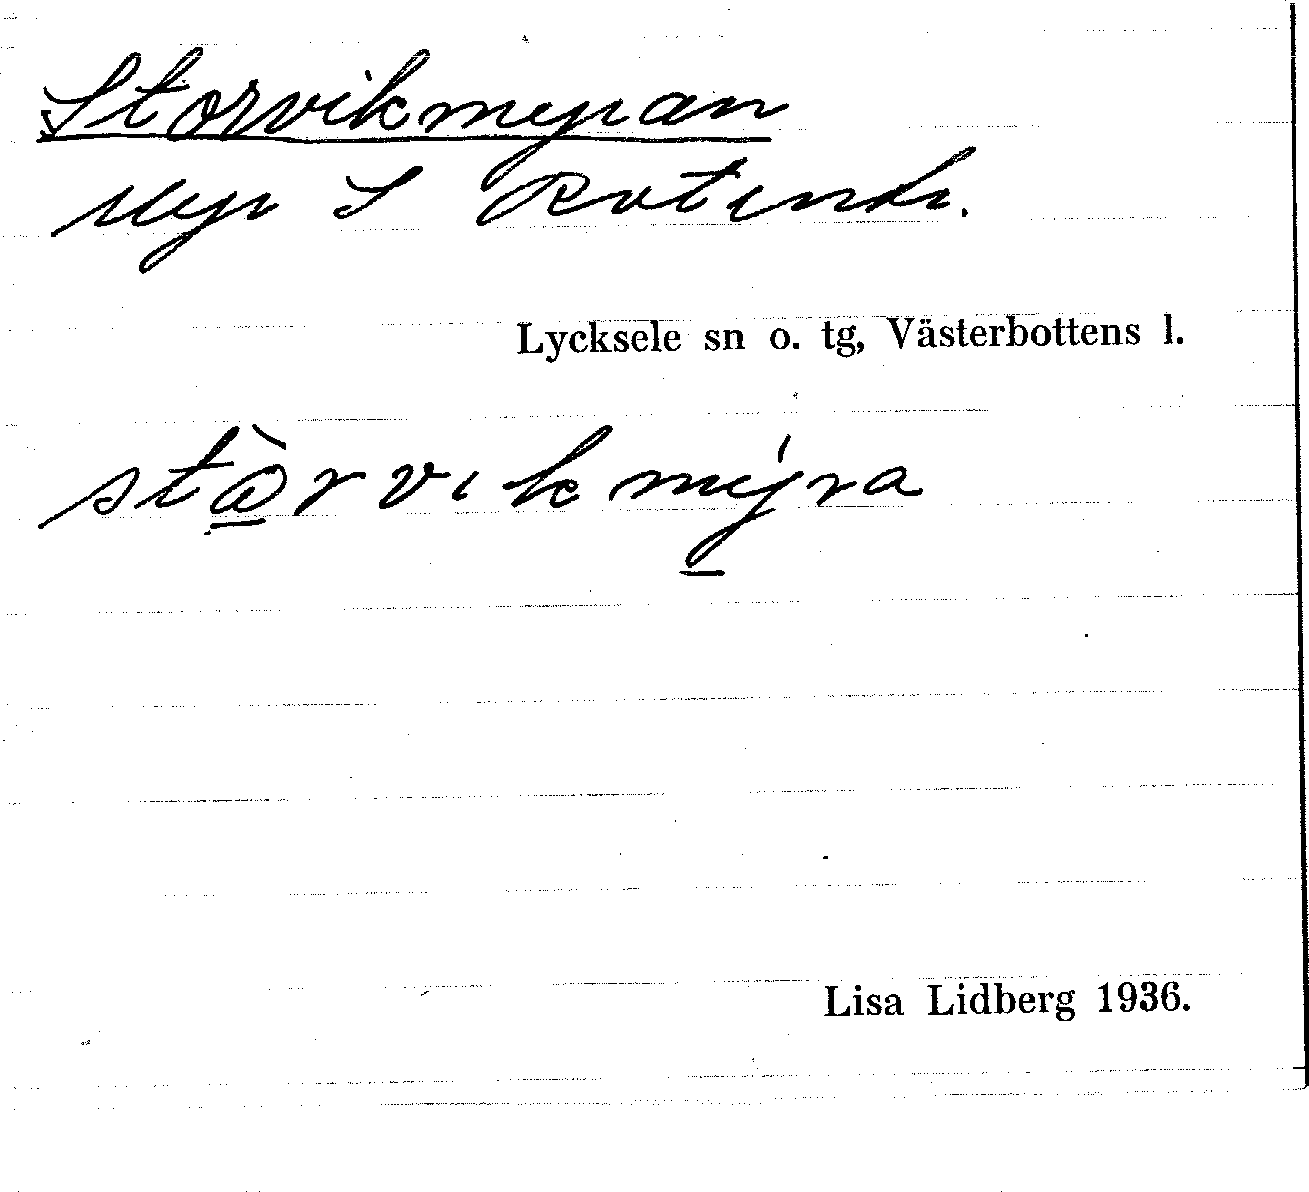 Storvikmyran
Myr S Rotindr.
Lycksele sn o. tg, Västerbottens l.
stàrvikmýra
Lisa Lidberg 1936.